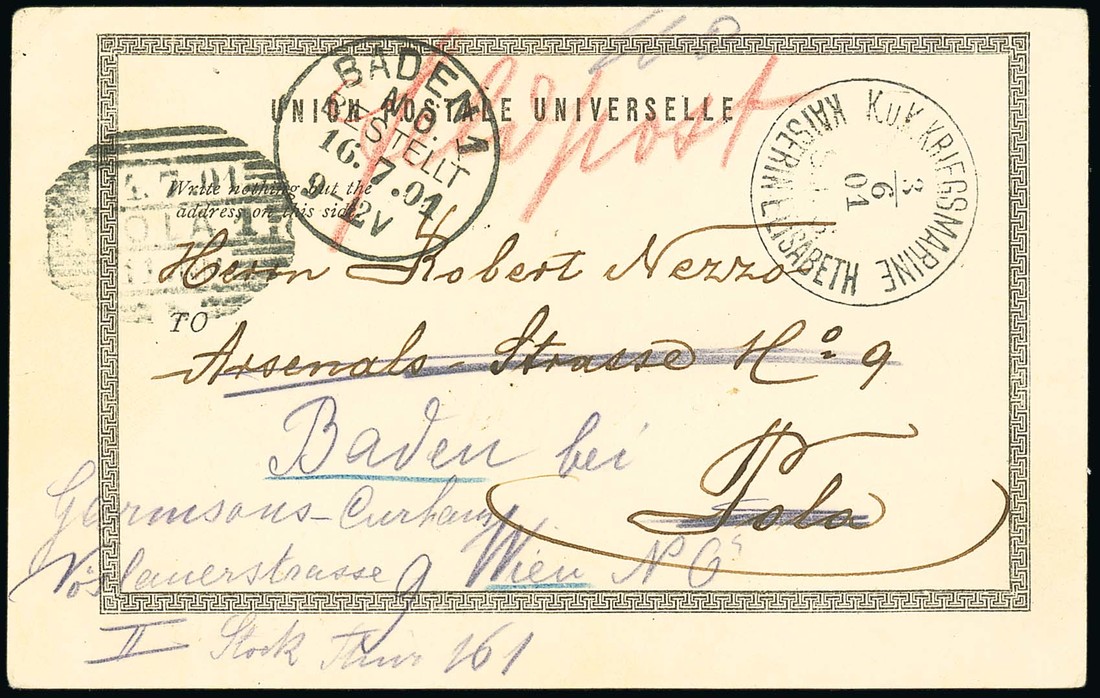 Feldpost
UNION POSTALE UNIVERSELLE
BADEN 1
N.Ö.
BESTELLT
16.7.01
9-12V
K.u.K. KRIEGSMARINE
KAISERIN ELISABETH
3
6
01
.7.01
POLA 1
Write nothing but the
address on this side.
TO
Herrn Robert Nezzo
Arsenals-Strasse No 9
Pola
Baden bei
Wien
Garnisons-Curhaus
Vöslauerstrasse 9
II Stock Thür 161